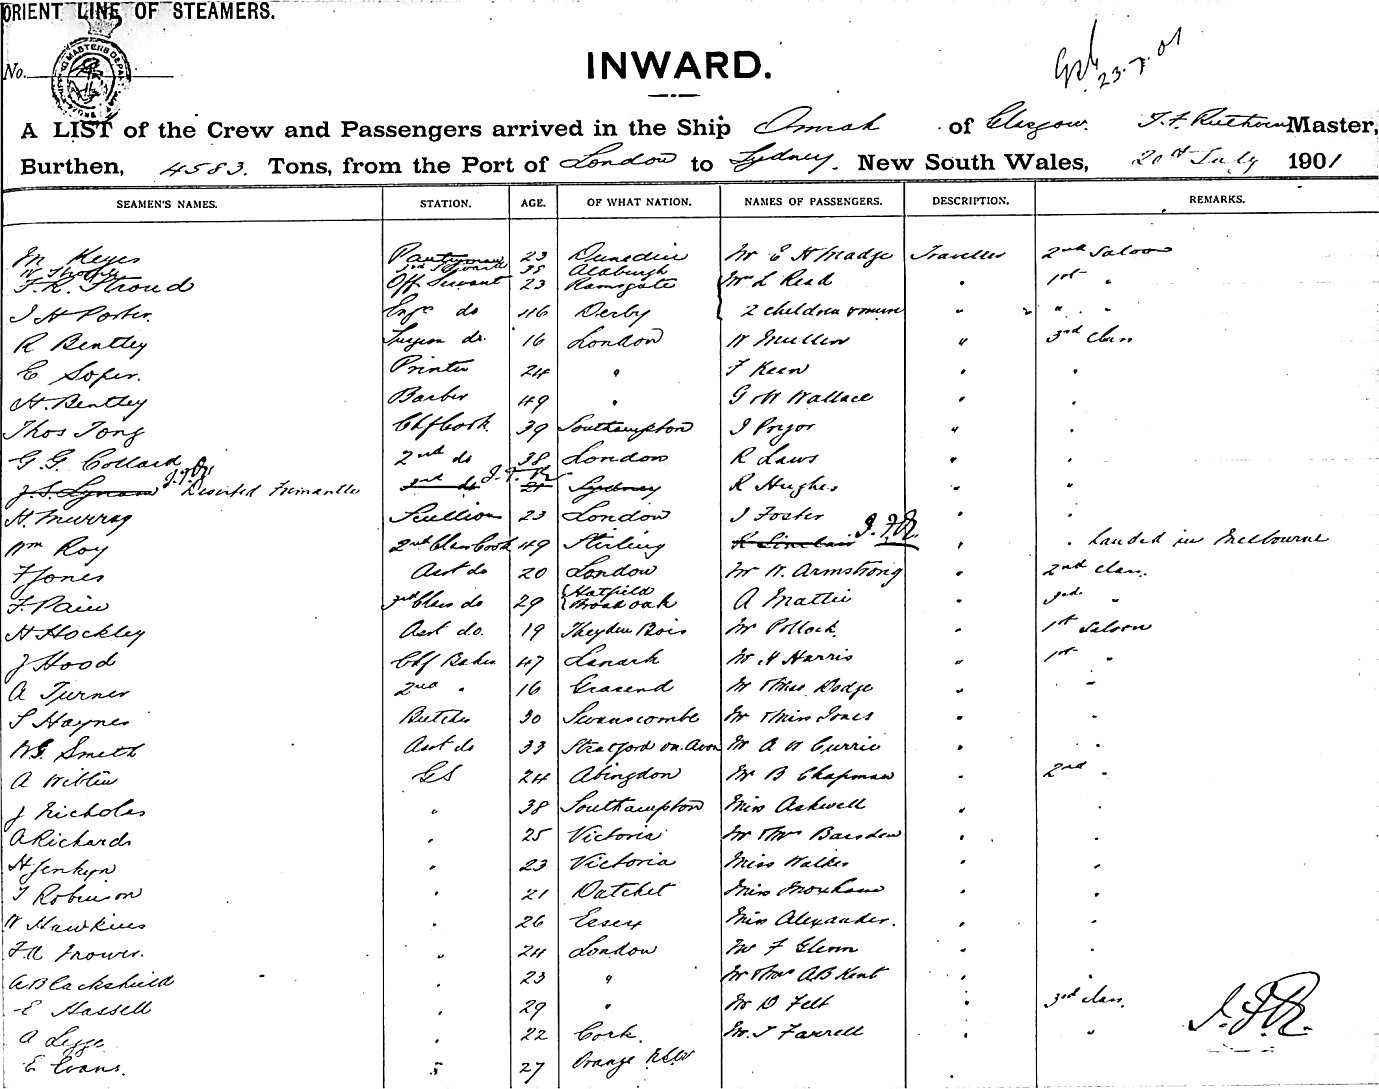 ORIENT LINE OF STEAMERS.
No.
INWARD.
23.7.01
A LIST of the Crew and Passengers arrived in the Ship Omrah of Glasgow. J. F. Ruthven Master,
Burthen, 4583. Tons, from the Port of London to Sydney. New South Wales, 20th July 1901
SEAMEN'S NAMES. STATION. AGE. OF WHAT NATION. NAMES OF PASSENGERS. DESCRIPTION. REMARKS.
M Keyes Pantryman 23 Dunedin Mr E H Madge Traveller 2nd Saloon
W 38
F. R. Stroud Off. Servant 23 Ramsgate Mrs L Read " 1st "
J H Porter. Engrs do 46 Derby 2 children & nurse " " "
R Bentley Surgeon do. 16 London W Mullen " 3rd class
E Soper. Printer 24 " F Keen " "
H. Bentley Barber 49 " G W Wallace " "
Thos Tong Chf Cook. 39 Southampton J Pryor " "
G. G. Collard 2nd do 38 London R Laws " "
J. S. Lynam J.F.R. Deserted Fremantle 3rd do J.F.R. 21 Sydney R Hughes " "
H. Murray Scullion 23 London J Foster " "
Wm Roy 2nd Class Cook 49 Stirling K Sinclair J.F.R. " " Landed in Melbourne
F Jones Asst do 20 London Mr W. Armstrong " 2nd class.
F. Pain 3rd Class do 29 Hatfield Broad oak A Mattei " 3rd "
H Hockley Asst do. 19 Theydon Bois Mr Pollock. " 1st Saloon
J Hood Chf Baker 47 Lanark Mr H Harris " 1st "
A Turner 2nd " 16 Gravesend Mr & Mrs Dodge " "
S Haynes Butcher 30 Swanscombe Mr & Miss Jones " "
W. G. Smith Asst do 33 Stratford on Avon Mr A W Currie " "
A Wiblin GS 24 Abingdon Mr B Chapman " 2nd "
J Nicholas " 38 Southampton Miss Askwell " "
A Richards " 25 Victoria Mr & Mrs Barsden " "
H Jenkyn " 23 Victoria Miss Walker " "
T Robinson " 21 Datchet Miss Moxham " "
W Hawkins " 26 Essex Miss Alexander. " "
F. A Trower. " 24 London Mr F Glenn " "
A Blackshield " 23 " Mr & Mrs A B Kent " "
E Hassell " 29 " Mr D Felt " 3rd class.
A Legge " 22 Cork. Mr. J Farrell " "
J.F.R.
E Evans. 27 Orange NSW